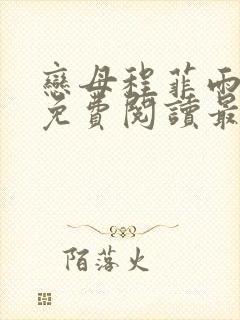 戀母程菲雨
免費閱讀最
陌落火